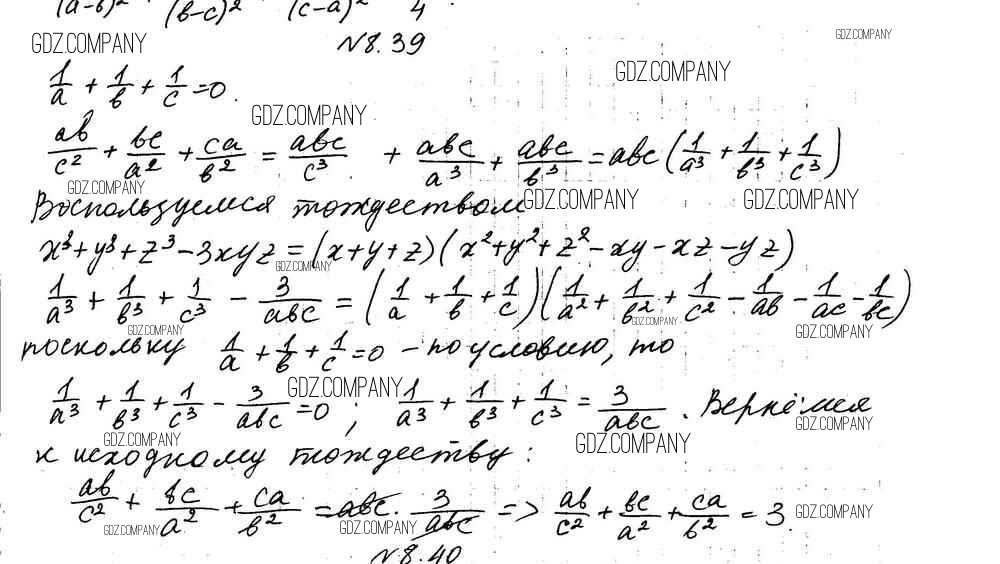 (a-b)² (b-c)² (c-a)² 4
N8.39
GDZ.COMPANY GDZ.COMPANY
1/a + 1/b + 1/c = 0.
GDZ.COMPANY GDZ.COMPANY
ab/c² + bc/a² + ca/b² = abc/c³ + abc/a³ + abc/b³ = abc(1/a³ + 1/b³ + 1/c³)
GDZ.COMPANY GDZ.COMPANY GDZ.COMPANY
Воспользуемся тождеством
x³+y³+z³-3xyz=(x+y+z)(x²+y²+z²-xy-xz-yz)
GDZ.COMPANY
1/a³ + 1/b³ + 1/c³ - 3/abc = (1/a + 1/b + 1/c)(1/a² + 1/b² + 1/c² - 1/ab - 1/ac - 1/bc)
GDZ.COMPANY GDZ.COMPANY GDZ.COMPANY
поскольку 1/a + 1/b + 1/c = 0 - по условию, то
GDZ.COMPANY
1/a³ + 1/b³ + 1/c³ - 3/abc = 0 ; 1/a³ + 1/b³ + 1/c³ = 3/abc . Вернёмся
GDZ.COMPANY GDZ.COMPANY GDZ.COMPANY
к исходному тождеству:
ab/c² + bc/a² + ca/b² = abc · 3/abc => ab/c² + bc/a² + ca/b² = 3.
GDZ.COMPANY GDZ.COMPANY GDZ.COMPANY
N8.40